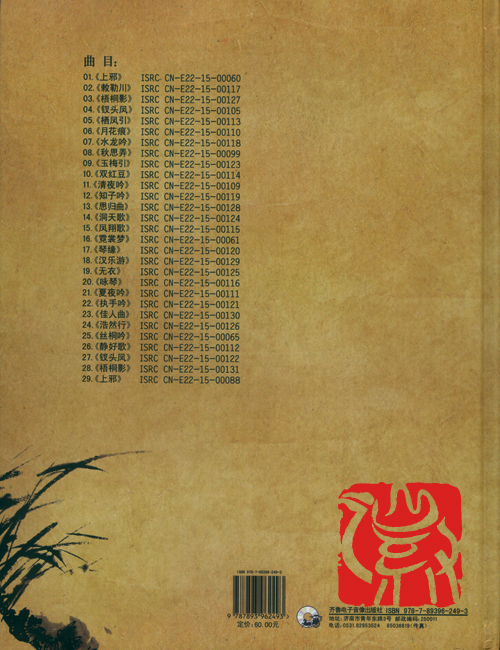 曲 目:
01.《上邪》 ISRC CN-E22-15-00060
02.《敕勒川》 ISRC CN-E22-15-00117
03.《梧桐影》 ISRC CN-E22-15-00127
04.《钗头凤》 ISRC CN-E22-15-00105
05.《栖凤引》 ISRC CN-E22-15-00113
06.《月花痕》 ISRC CN-E22-15-00110
07.《水龙吟》 ISRC CN-E22-15-00118
08.《秋思弄》 ISRC CN-E22-15-00099
09.《玉梅引》 ISRC CN-E22-15-00123
10.《双红豆》 ISRC CN-E22-15-00114
11.《清夜吟》 ISRC CN-E22-15-00109
12.《知子吟》 ISRC CN-E22-15-00119
13.《思归曲》 ISRC CN-E22-15-00128
14.《洞天歌》 ISRC CN-E22-15-00124
15.《凤翔歌》 ISRC CN-E22-15-00115
16.《霓裳梦》 ISRC CN-E22-15-00061
17.《琴缘》 ISRC CN-E22-15-00120
18.《汉乐游》 ISRC CN-E22-15-00129
19.《无衣》 ISRC CN-E22-15-00125
20.《咏琴》 ISRC CN-E22-15-00116
21.《夏夜吟》 ISRC CN-E22-15-00111
22.《执手吟》 ISRC CN-E22-15-00121
23.《佳人曲》 ISRC CN-E22-15-00130
24.《浩然行》 ISRC CN-E22-15-00126
25.《丝桐吟》 ISRC CN-E22-15-00065
26.《静好歌》 ISRC CN-E22-15-00112
27.《钗头凤》 ISRC CN-E22-15-00122
28.《梧桐影》 ISRC CN-E22-15-00131
29.《上邪》 ISRC CN-E22-15-00088
ISBN 978-7-89396-249-3
9 787893 962493
定价:60.00元
齐鲁电子音像出版社 ISBN 978-7-89396-249-3
地址:济南市黄年东路3号 邮政编码:250011
电话:0531.82953524 65038819(传真)